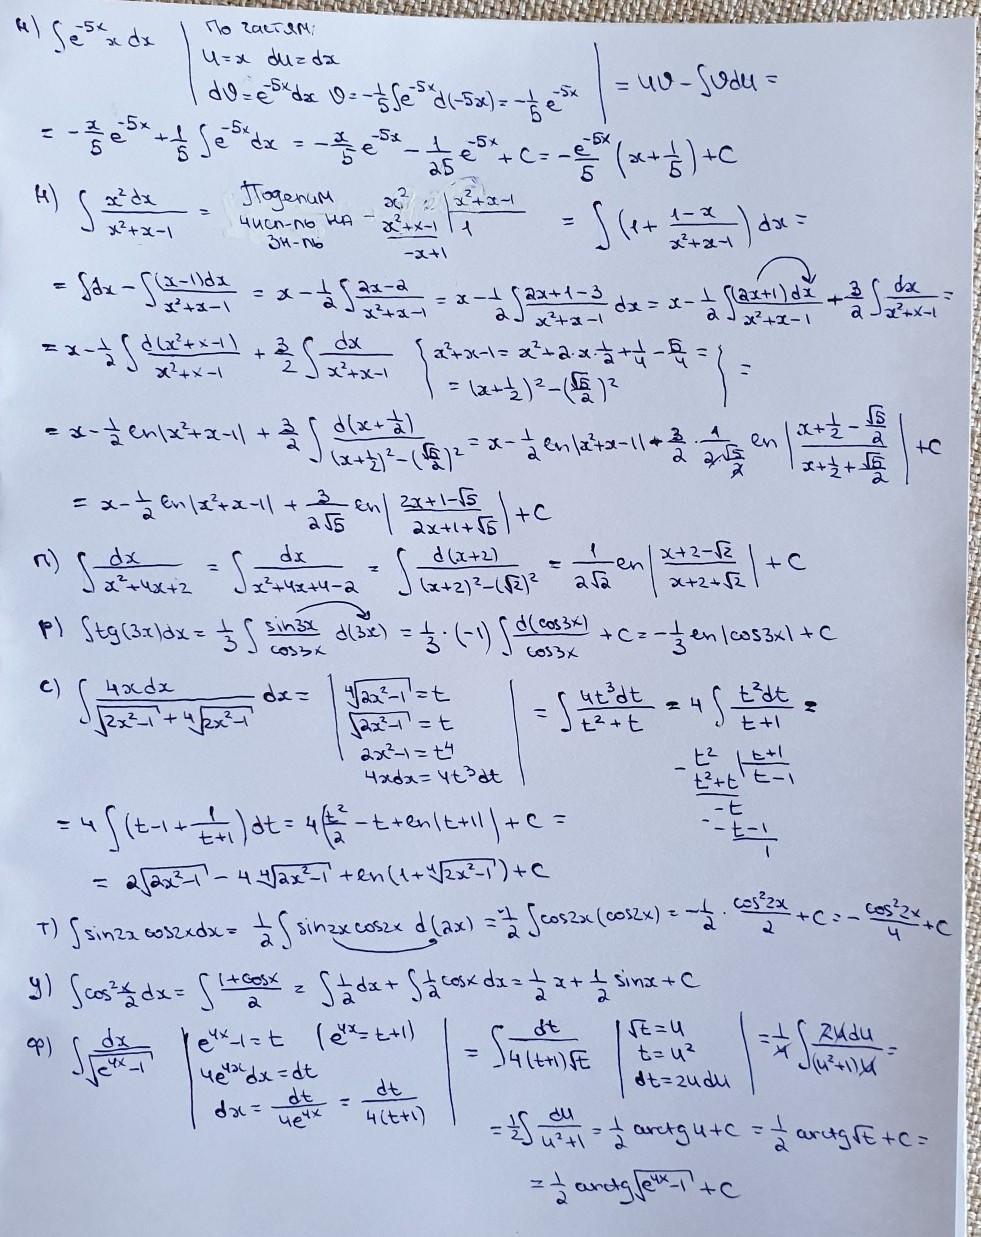 м) ∫e^{-5x} x dx | По частям: u = x du = dx dv = e^{-5x}dx v = -1/5 ∫e^{-5x}d(-5x) = -1/5 e^{-5x} | = uv - ∫vdu =
= -x/5 e^{-5x} + 1/5 ∫e^{-5x}dx = -x/5 e^{-5x} - 1/25 e^{-5x} + C = -e^{-5x}/5 (x + 1/5) + C
н) ∫ x²dx/(x²+x-1) = Поделим числ-ль на зн-ль - x² | x²+x-1 x²+x-1 | 1 -x+1 = ∫(1 + (1-x)/(x²+x-1)) dx =
= ∫dx - ∫(x-1)dx/(x²+x-1) = x - 1/2 ∫(2x-2)/(x²+x-1) = x - 1/2 ∫(2x+1-3)/(x²+x-1) dx = x - 1/2 ∫(2x+1)dx/(x²+x-1) + 3/2 ∫dx/(x²+x-1) =
= x - 1/2 ∫d(x²+x-1)/(x²+x-1) + 3/2 ∫dx/(x²+x-1) { x²+x-1 = x²+2·x·1/2+1/4 - 5/4 = = (x+1/2)² - (√5/2)² } =
= x - 1/2 ln|x²+x-1| + 3/2 ∫d(x+1/2)/((x+1/2)² - (√5/2)²) = x - 1/2 ln|x²+x-1| + 3/2 · 1/(2√5/2) ln|(x+1/2-√5/2)/(x+1/2+√5/2)| + C
= x - 1/2 ln|x²+x-1| + 3/(2√5) ln|(2x+1-√5)/(2x+1+√5)| + C
п) ∫dx/(x²+4x+2) = ∫dx/(x²+4x+4-2) = ∫d(x+2)/((x+2)²-(√2)²) = 1/(2√2) ln|(x+2-√2)/(x+2+√2)| + C
р) ∫tg(3x)dx = 1/3 ∫ sin3x/cos3x d(3x) = 1/3 · (-1) ∫d(cos3x)/cos3x + C = -1/3 ln|cos3x| + C
с) ∫ 4xdx/(√(2x²-1) + ⁴√(2x²-1)) dx = | ⁴√(2x²-1) = t √(2x²-1) = t 2x²-1 = t⁴ 4xdx = 4t³dt | = ∫ 4t³dt/(t²+t) = 4 ∫ t²dt/(t+1) =
- t² | t+1 t²+t | t-1 -t - -t-1 1
= 4 ∫(t-1+1/(t+1))dt = 4(t²/2 - t + ln|t+1|) + C =
= 2√(2x²-1) - 4 ⁴√(2x²-1) + ln(1+⁴√(2x²-1)) + C
т) ∫sin2x cos2xdx = 1/2 ∫sin2x cos2x d(2x) = -1/2 ∫cos2x(cos2x) = -1/2 · cos²2x/2 + C = -cos²2x/4 + C
у) ∫cos² x/2 dx = ∫(1+cosx)/2 = ∫1/2 dx + ∫1/2 cosx dx = 1/2 x + 1/2 sinx + C
ф) ∫dx/√(e^{4x}-1) | e^{4x}-1 = t (e^{4x} = t+1) 4e^{4x}dx = dt dx = dt/4e^{4x} = dt/4(t+1) | = ∫dt/(4(t+1)√t) | √t = u t = u² dt = 2udu | = 1/4 ∫2udu/((u²+1)u) =
= 1/2 ∫du/(u²+1) = 1/2 arctgu + C = 1/2 arctg√t + C =
= 1/2 arctg√(e^{4x}-1) + C